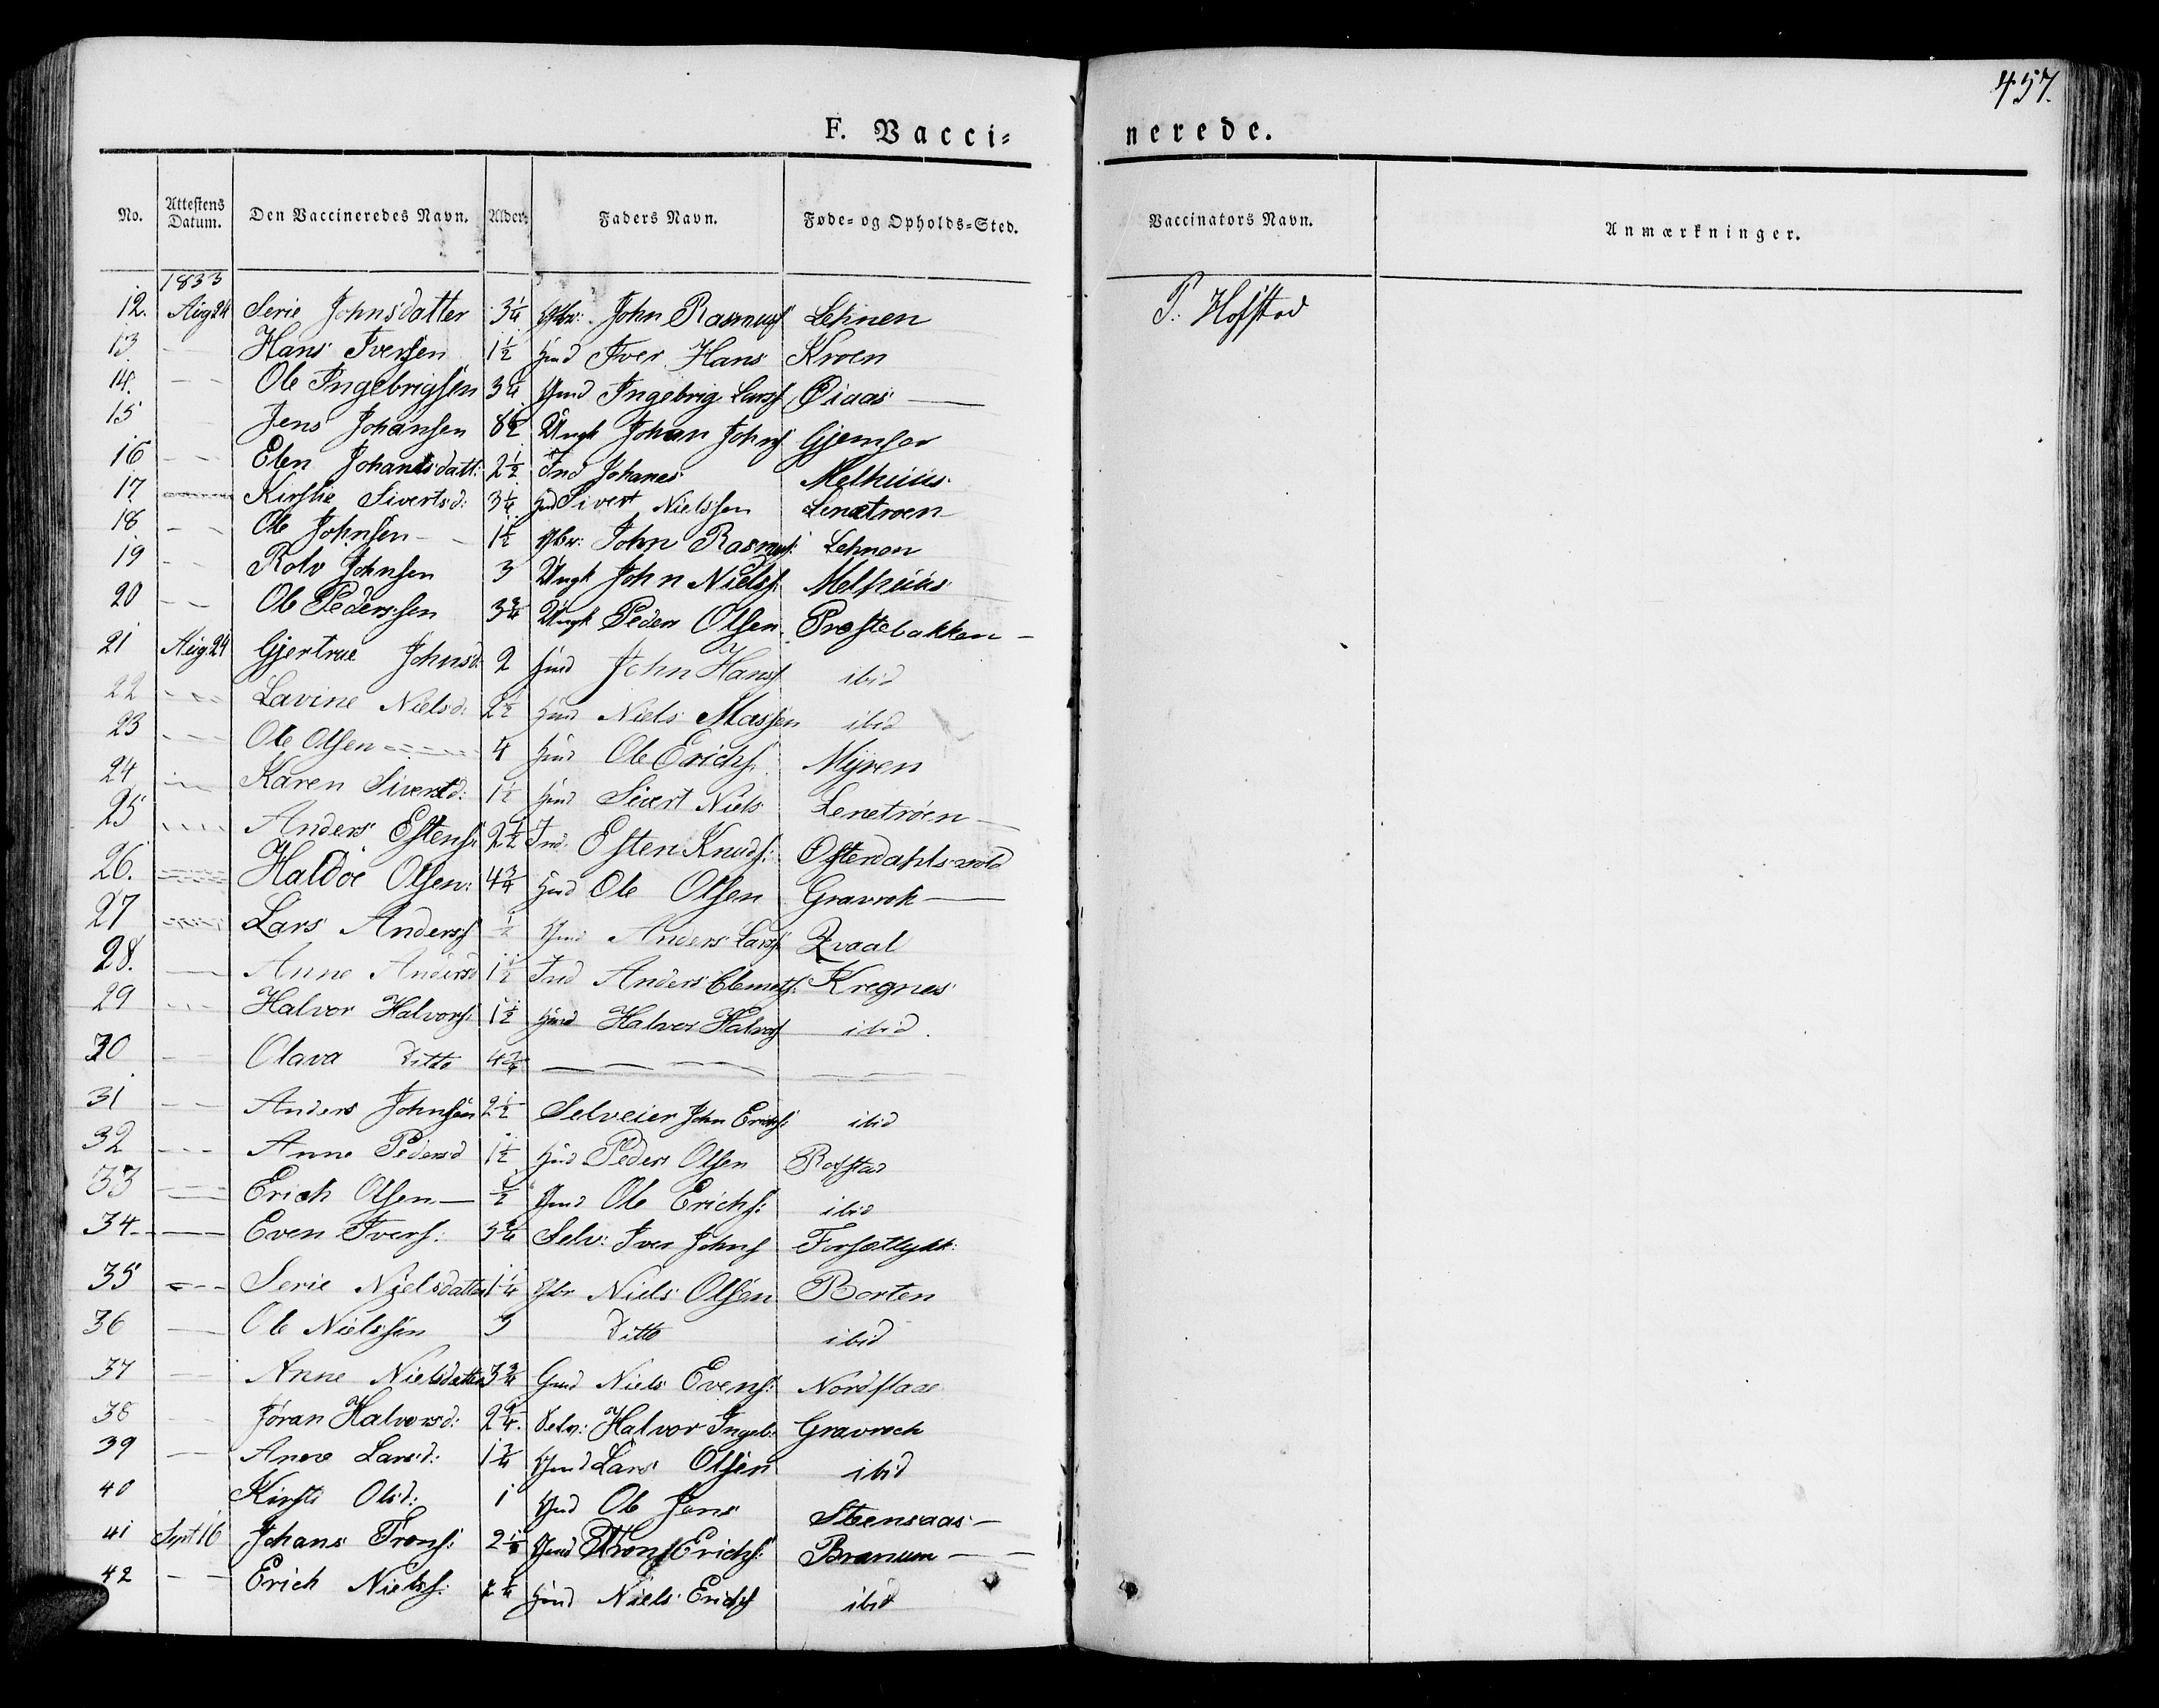 457.
F. Vacci= nerede.
No. Attestens Datum. Den Vaccineredes Navn. Alder. Faders Navn. Føde= og Opholds=Sted. Vaccinators Navn. Anmærkninger.
1833
12. Aug 24 Serie Johnsdatter 3 1/4 Gbr: John Rasmus Lehnen P. Hofstad
13 — Hans Iversen 1 1/2 Hmd Iver Hans Kroen
14. — — Ole Ingebrigsen 3 1/4 Hmd Ingebrig Lars Øiaas —
15 Jens Johansen 8 1/2 Ungk Johan Johns Gjemse
16 — — Elen Johansdatt: 2 1/2 Ind Johanes Melhuus
17 — Kirstie Sivertsd: 3 1/4 Hmd Sivert Nielssen Lenetroen
18 — — Ole Johnsen — 1 1/2 Gbr: John Rasmus: Lehnen
19 — — Rolv Johnsen 3 Ungk John Niels: Melhuus
20 — — Ole Pederssen 3 3/4 Ungk Peder Olsen Præstebakken —
21 Aug 24 Gjertrue Johnsd: 2 Hmd John Hans ibid
22 — — Lavine Nielsd: 2 1/2 Hmd Niels Massen ibid
23 — — Ole Olsen — 4 Hmd Ole Erichs: Myren
24 — — Karen Sivertd: 1 1/2 Hmd Sivert Niels Lenetrøen —
25 — — Anders Estens: 2 1/2 Ind: Esten Knuds: Østerdahlsvold
26. — — Haldoe Olsen: 4 3/4 Hmd Ole Olsen Gravrok —
27 — — Lars Anders 1/2 Hmd Anders Lars: Qvaal
28. — Anne Andersd 1 1/2 Ind Anders Clemets: Kregnes
29 — — Halvor Halvors: 1 1/2 Hmd Halvor Halvors ibid.
30 — Olava Ditto 4 3/4 — — — —
31 — — Anders Johnsen 2 1/2 Selveier John Erichs: ibid
32 — — Anne Pedersd 1 1/2 Hmd Peder Olsen Rofstad
33 — — Erich Olsen — 1/2 Hmd Ole Erichs: ibid
34 — — Even Ivers: Selv: Iver Johns
35 — — Serie Nielsdatter 1 1/4 Gbr Niels Olsen Borten
36 — Ole Nielssen 3 Ditto ibid
37 — — Anne Nielsdatter 3 3/4 Gmd Niels Evens: Nordflaae
38 — Jøran Halvorsd: Selv: Halvor Ingeb: Gravroch
39 — Anne Larsd: 1 3/4 Hmd Lars Olsen ibid
40 Kirsti Olsd: 1 Hmd Ole Jens Steensaas —
41 Sept 16 Johans Trons: Hmd Trons Erichs: Branum —
42 — — Erich Niels: Hmd Niels Erichs ibid